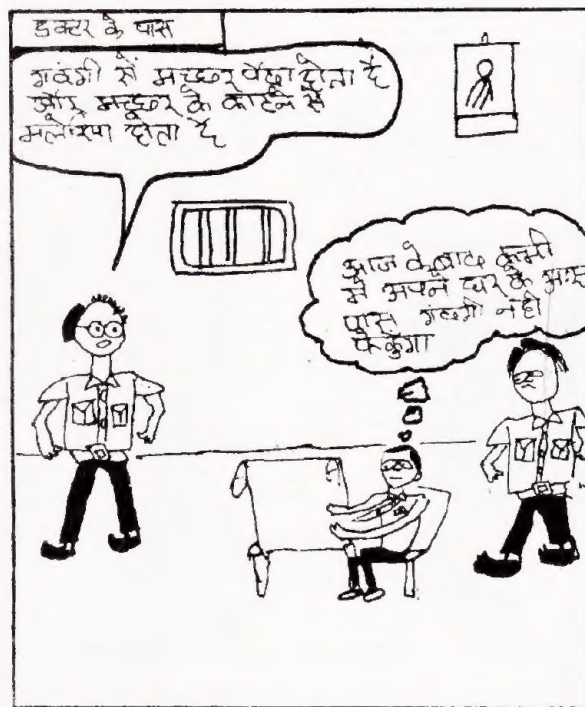 डक्टर के पास
गदंगी से मच्छर पैदा होता है
और मच्छर के काटने से
मलेरिया होता है
आज के बाद कभी
मे अपने घर के आस
पास गंदगी नही
फेकुंगा